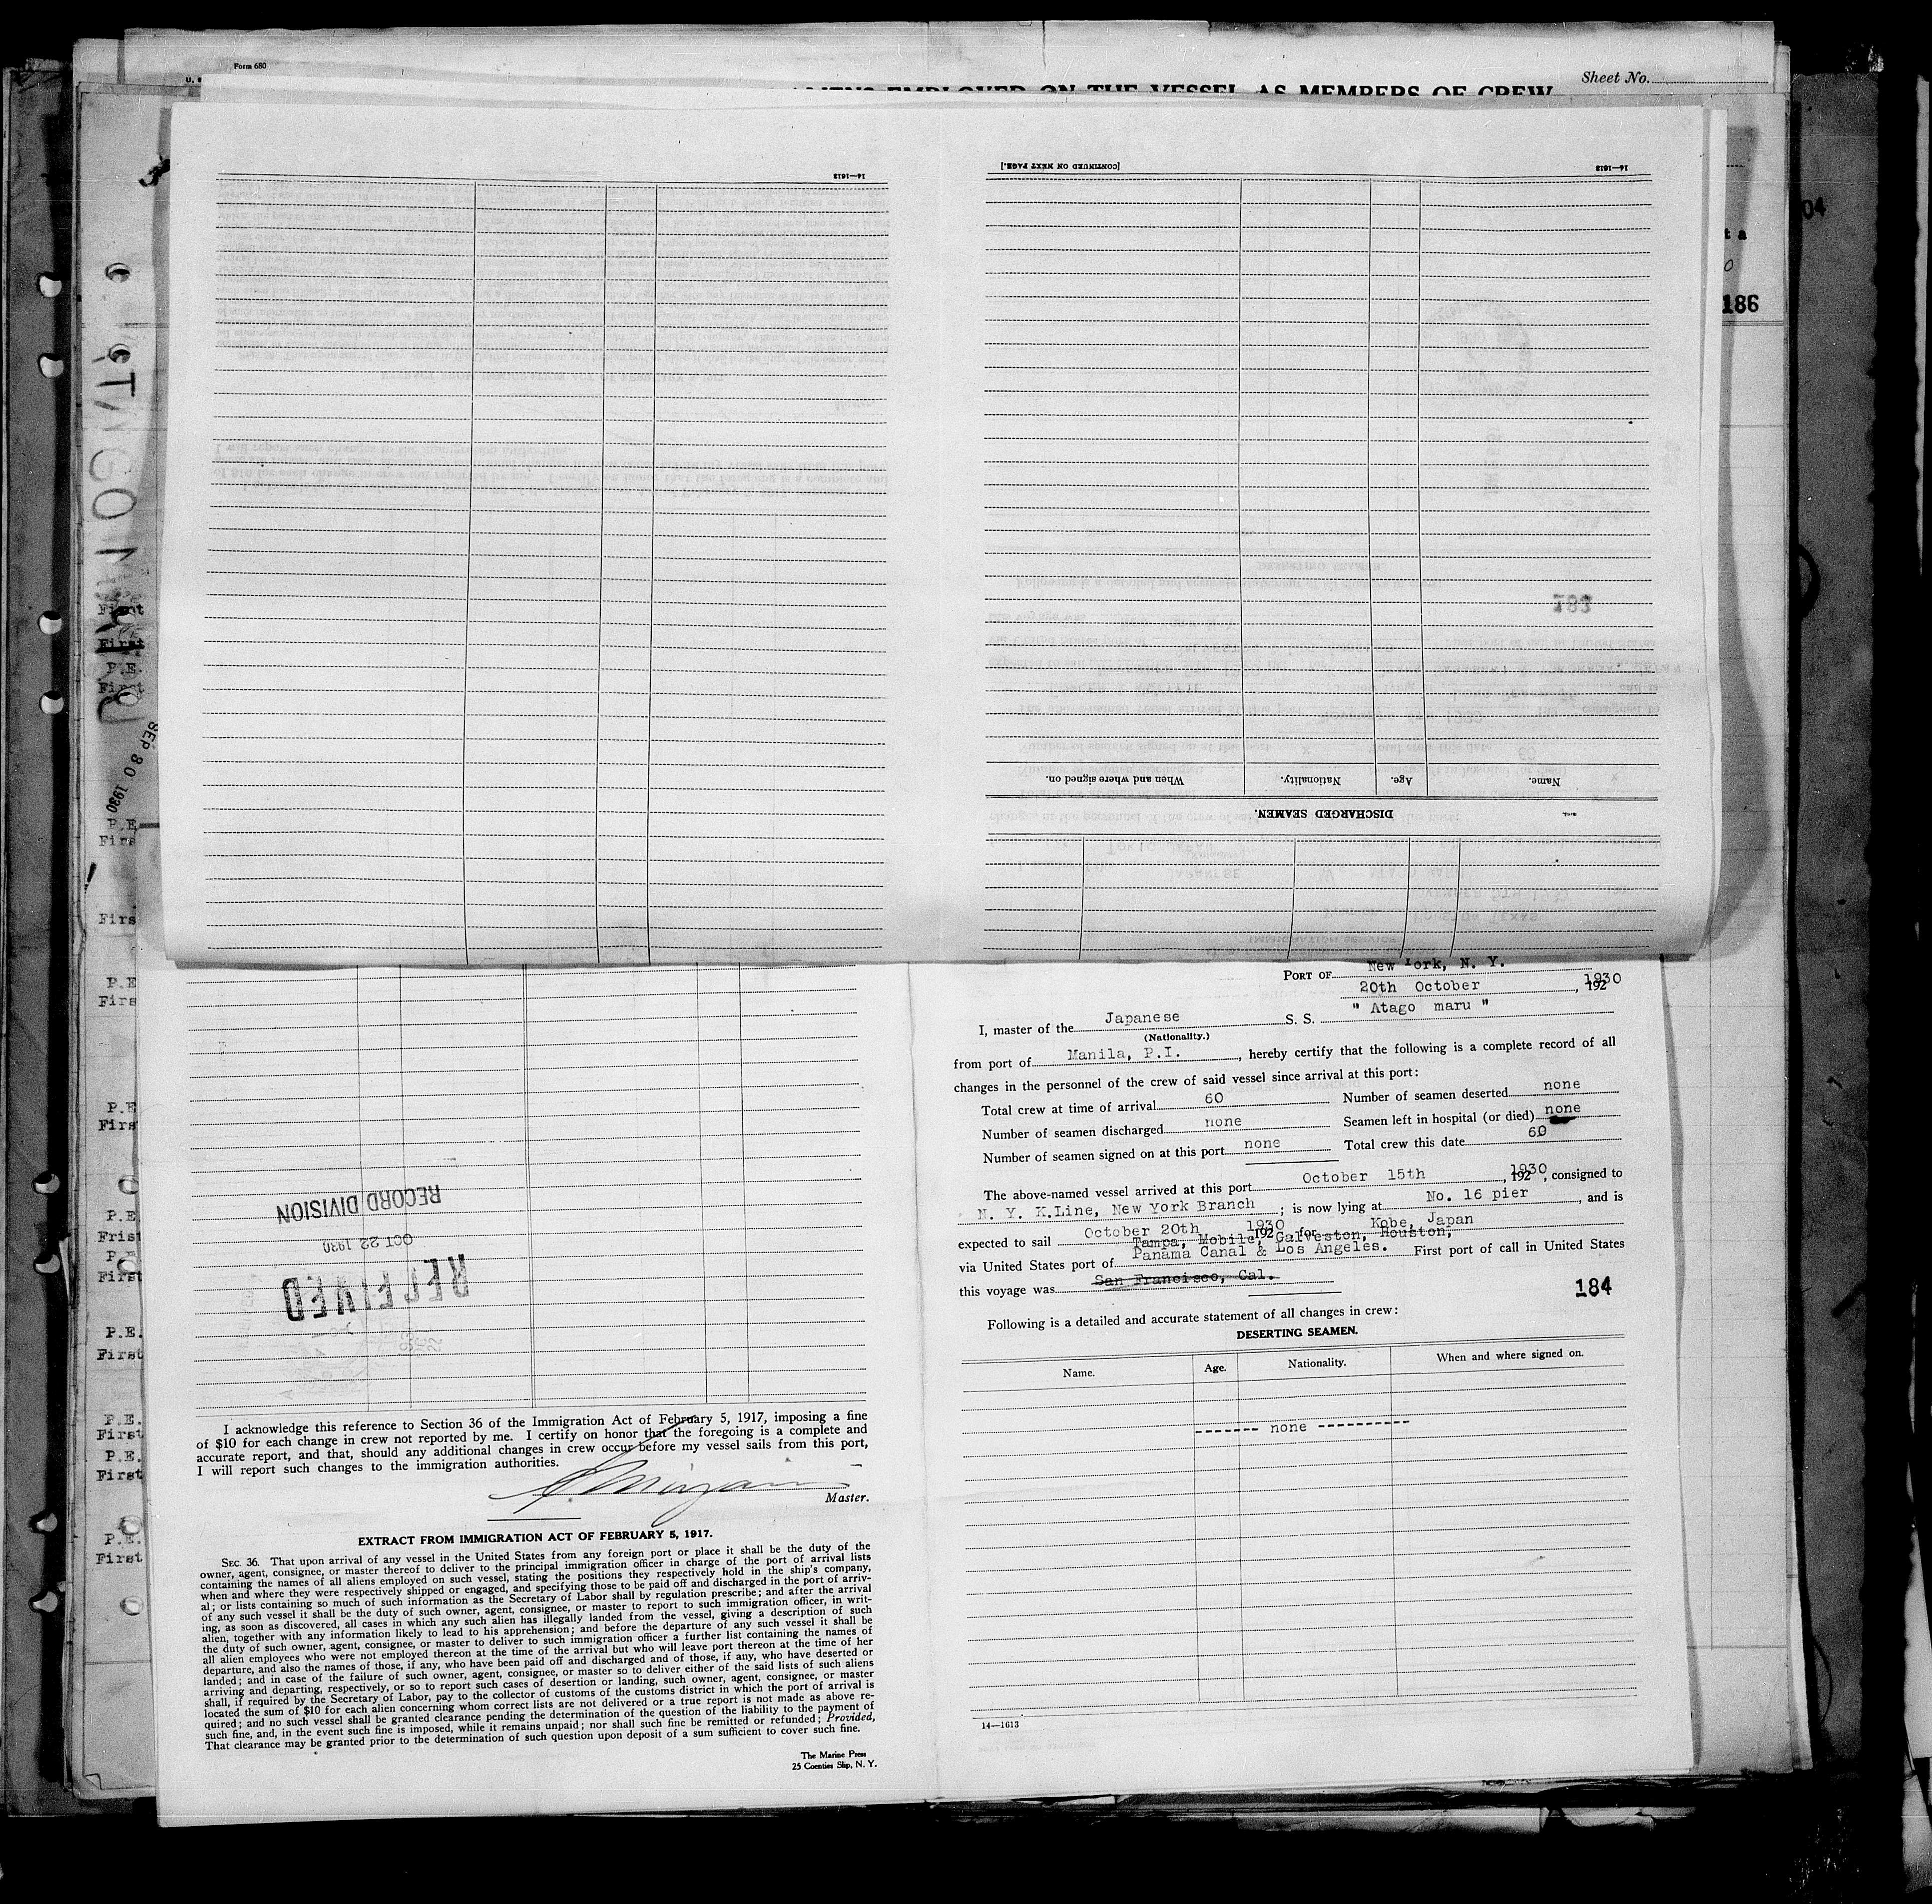 Form 680
Sheet No.
ALIENS EMPLOYED ON THE VESSEL AS MEMBERS OF CREW
16—1613
[CONTINUED ON NEXT PAGE.]
16—1613
186
183
When and where signed on.
Nationality.
Age.
Name.
DISCHARGED SEAMEN.
SEP 30 1930
First
First
P.E.
First
P.E
Firs
Firs
P.E
Firs
P.E
Firs
P.E.
Frist
First
P.E.
First
P.E.
First
P.E.
First
P.E.
First
PORT OF New York, N. Y.
20th October, 1930
I, master of the Japanese S. S. " Atago maru "
(Nationality.)
from port of Manila, P.I., hereby certify that the following is a complete record of all
changes in the personnel of the crew of said vessel since arrival at this port:
Total crew at time of arrival 60 Number of seamen deserted none
Number of seamen discharged none Seamen left in hospital (or died) none
Number of seamen signed on at this port none Total crew this date 60
The above-named vessel arrived at this port October 15th, 1930, consigned to
N. Y. K.Line, New York Branch; is now lying at No. 16 pier, and is
expected to sail October 20th 1930 for Kobe, Japan
Tampa, Mobile, Galveston, Houston,
via United States port of Panama Canal & Los Angeles. First port of call in United States
this voyage was San Francisco, Cal.
184
Following is a detailed and accurate statement of all changes in crew:
DESERTING SEAMEN.
Name. Age. Nationality. When and where signed on.
------- none -----------
14—1613
RECORD DIVISION
OCT 22 1930
RECEIVED
I acknowledge this reference to Section 36 of the Immigration Act of February 5, 1917, imposing a fine
of $10 for each change in crew not reported by me. I certify on honor that the foregoing is a complete and
accurate report, and that, should any additional changes in crew occur before my vessel sails from this port,
I will report such changes to the immigration authorities.
Master.
EXTRACT FROM IMMIGRATION ACT OF FEBRUARY 5, 1917.
SEC. 36. That upon arrival of any vessel in the United States from any foreign port or place it shall be the duty of the
owner, agent, consignee, or master thereof to deliver to the principal immigration officer in charge of the port of arrival lists
containing the names of all aliens employed on such vessel, stating the positions they respectively hold in the ship's company,
when and where they were respectively shipped or engaged, and specifying those to be paid off and discharged in the port of arriv-
al; or lists containing so much of such information as the Secretary of Labor shall by regulation prescribe; and after the arrival
of any such vessel it shall be the duty of such owner, agent, consignee, or master to report to such immigration officer, in writ-
ing, as soon as discovered, all cases in which any such alien has illegally landed from the vessel, giving a description of such
alien, together with any information likely to lead to his apprehension; and before the departure of any such vessel it shall be
the duty of such owner, agent, consignee, or master to deliver to such immigration officer a further list containing the names of
all alien employees who were not employed thereon at the time of the arrival but who will leave port thereon at the time of her
departure, and also the names of those, if any, who have been paid off and discharged and of those, if any, who have deserted or
landed; and in case of the failure of such owner, agent, consignee, or master so to deliver either of the said lists of such aliens
arriving and departing, respectively, or so to report such cases of desertion or landing, such owner, agent, consignee, or master
shall, if required by the Secretary of Labor, pay to the collector of customs of the customs district in which the port of arrival is
located the sum of $10 for each alien concerning whom correct lists are not delivered or a true report is not made as above re-
quired; and no such vessel shall be granted clearance pending the determination of the question of the liability to the payment of
such fine, and, in the event such fine is imposed, while it remains unpaid; nor shall such fine be remitted or refunded; Provided,
That clearance may be granted prior to the determination of such question upon deposit of a sum sufficient to cover such fine.
The Marine Press
25 Coenties Slip, N. Y.